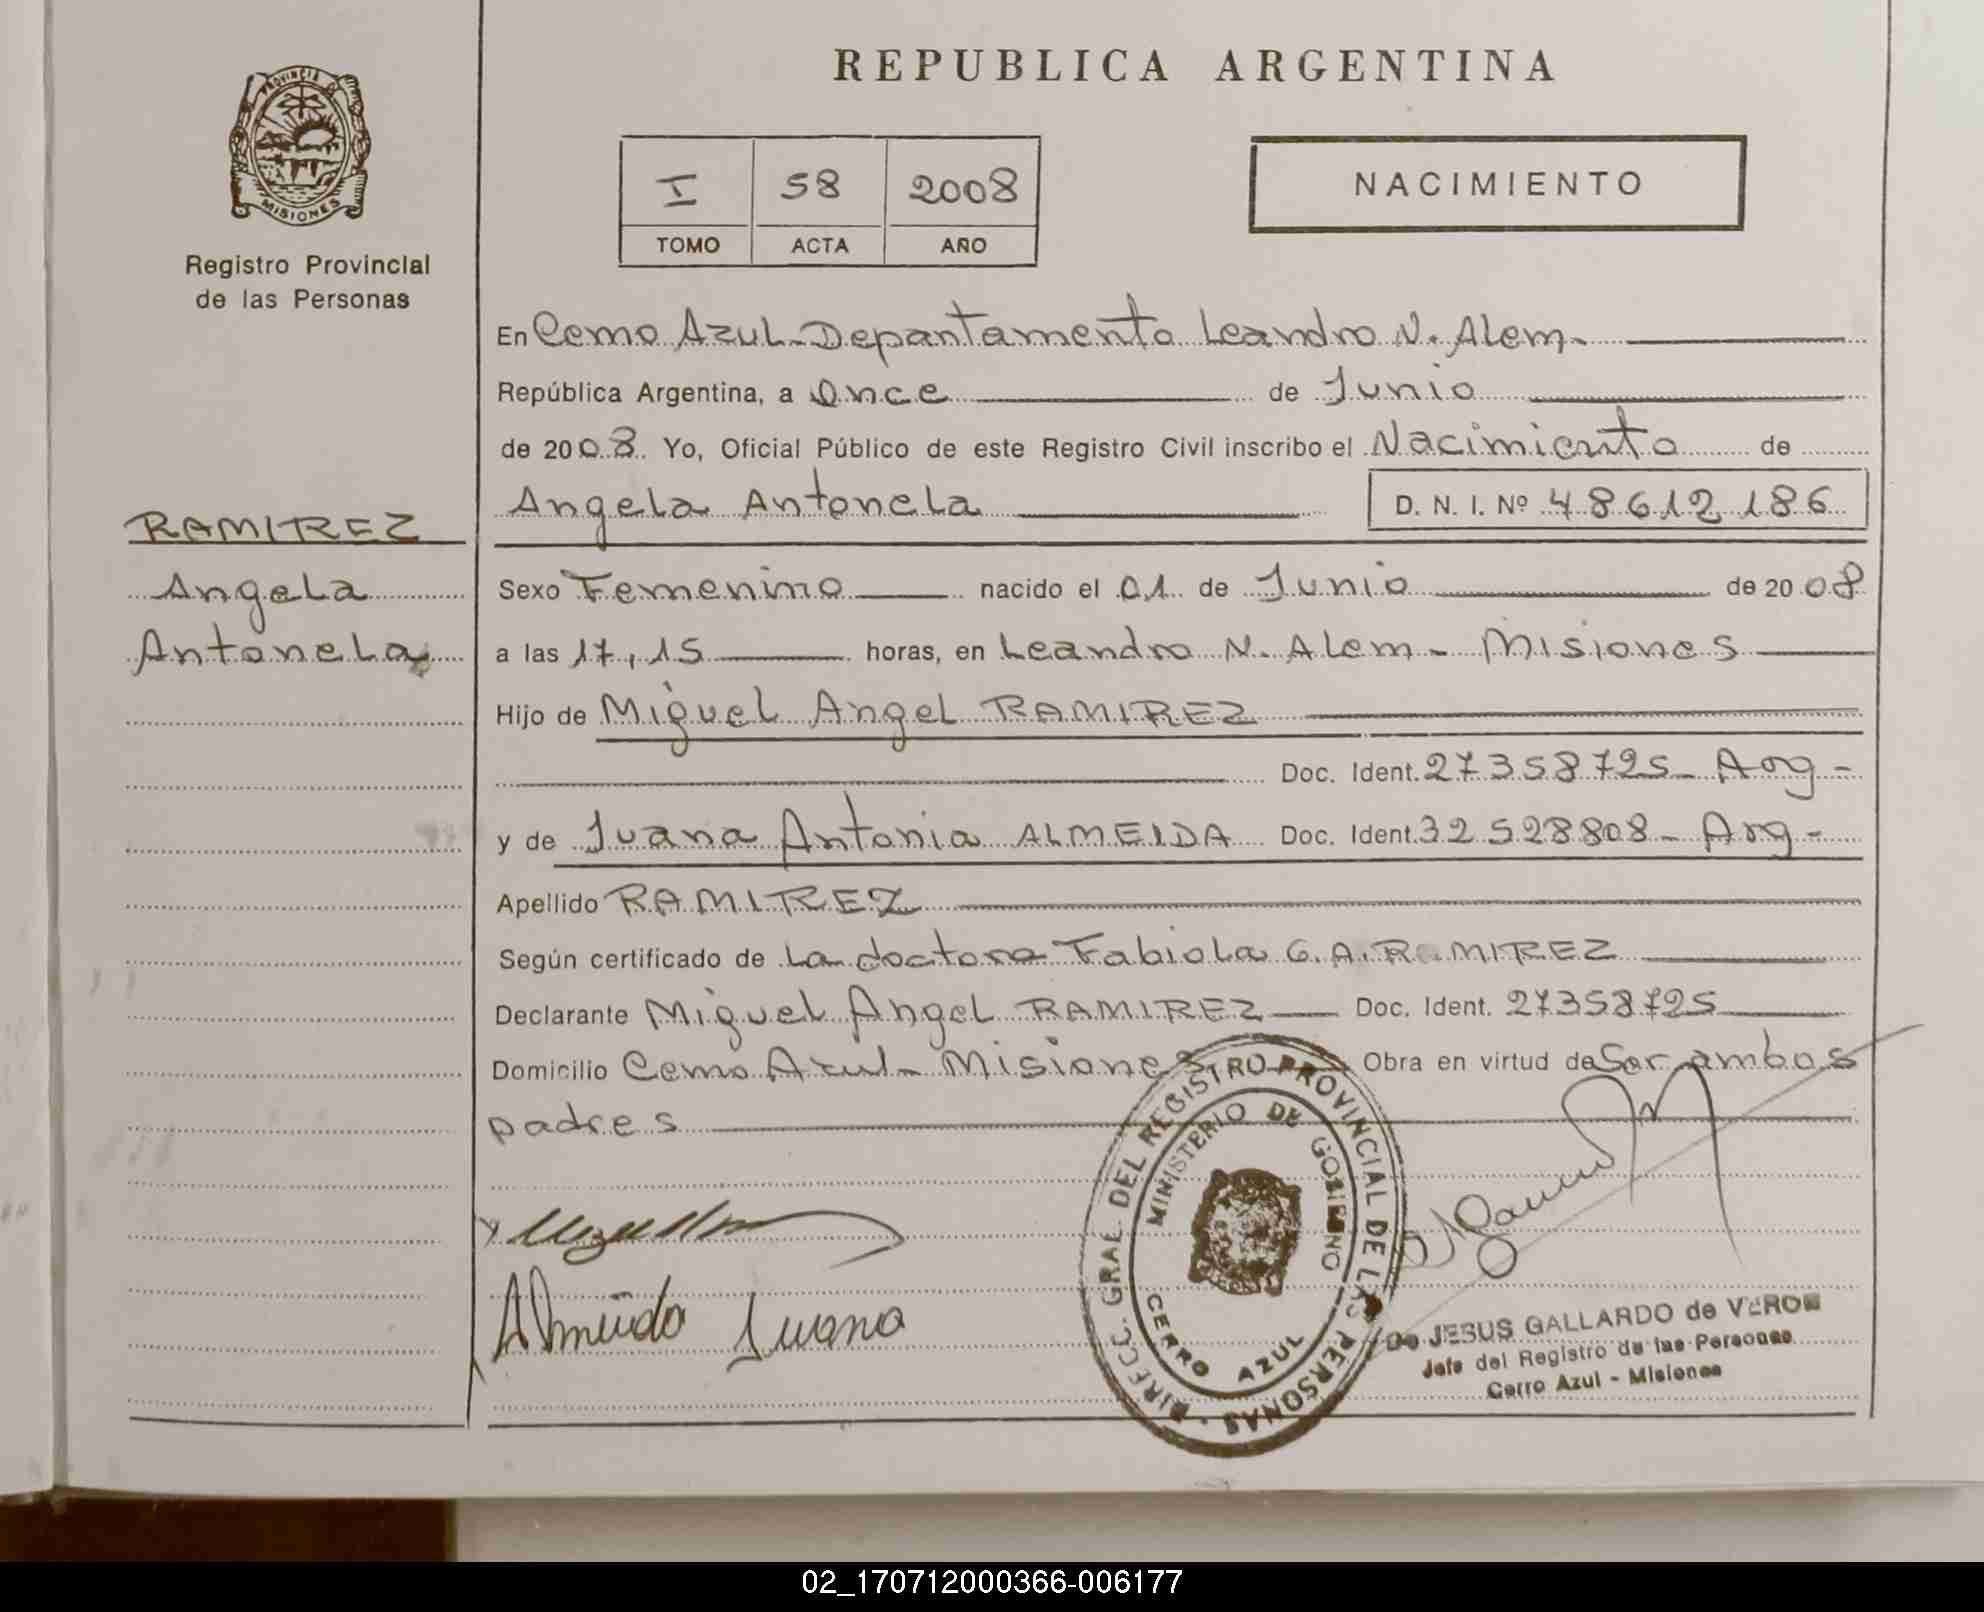 REPUBLICA ARGENTINA
PROVINCIA DE
MISIONES
Registro Provincial
de las Personas
I 58 2008
TOMO ACTA AÑO
NACIMIENTO
En Cerro Azul - Departamento Leandro N. Alem -
República Argentina, a Once de Junio
de 2008. Yo, Oficial Público de este Registro Civil inscribo el Nacimiento de
Angela Antonela D. N. I. Nº 48612186
RAMIREZ
Angela
Antonela
Sexo Femenino nacido el 01 de Junio de 2008
a las 17,15 horas, en Leandro N. Alem - Misiones
Hijo de Miguel Angel RAMIREZ
Doc. Ident. 27358725 - Arg -
y de Juana Antonia ALMEIDA Doc. Ident. 32528808 - Arg -
Apellido RAMIREZ
Según certificado de La doctora Fabiola G. A. RAMIREZ
Declarante Miguel Angel RAMIREZ Doc. Ident. 27358725
Domicilio Cerro Azul - Misiones Obra en virtud de Ser ambos
padres
Almeida Juana
DIRECC. GRAL. DEL REGISTRO PROVINCIAL DE LAS PERSONAS
MINISTERIO DE GOBIERNO
CERRO AZUL
JESUS GALLARDO de VERON
Jefe del Registro de las Personas
Cerro Azul - Misiones
02_170712000366-006177